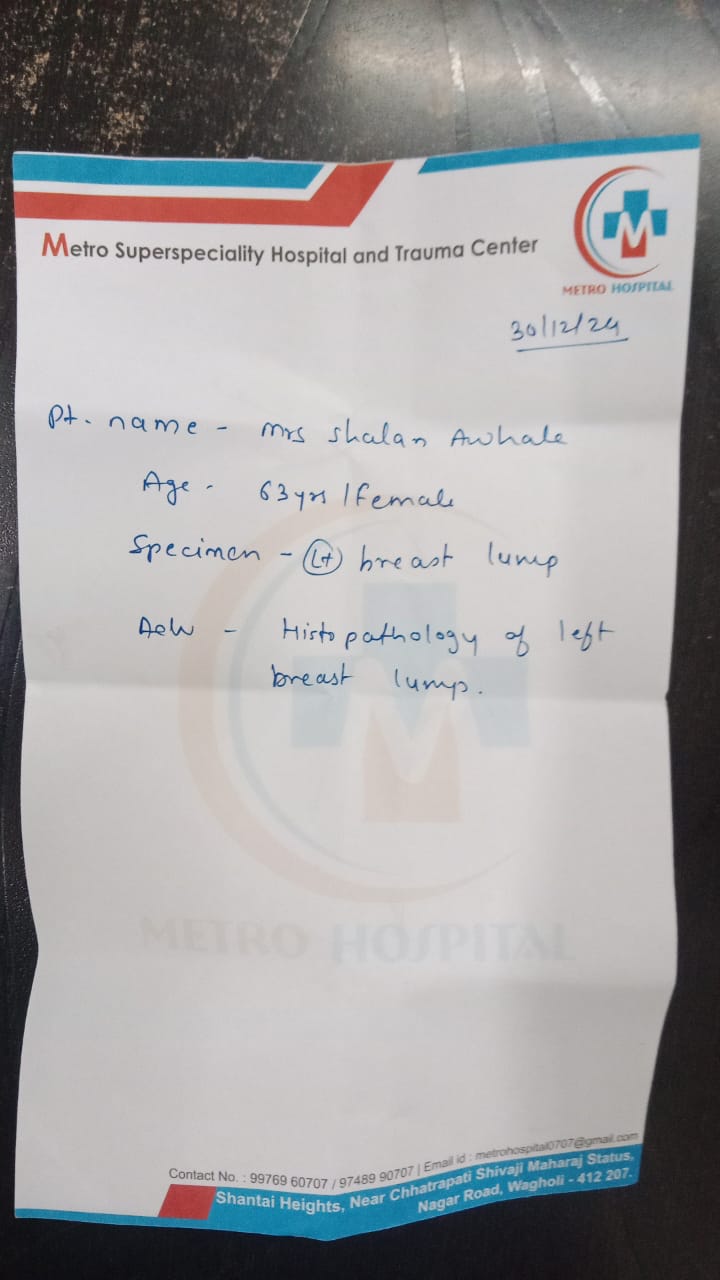 Metro Superspeciality Hospital and Trauma Center
METRO HOSPITAL
30/12/24
Pt. name - Mrs Shalan Awhale
Age - 63 yrs / Female
Specimen - Lt breast lump
Adv - Histopathology of left
breast lump.
METRO HOSPITAL
Contact No. : 99769 60707 / 97489 90707 | Email id : metrohospital0707@gmail.com
Shantai Heights, Near Chhatrapati Shivaji Maharaj Status,
Nagar Road, Wagholi - 412 207.